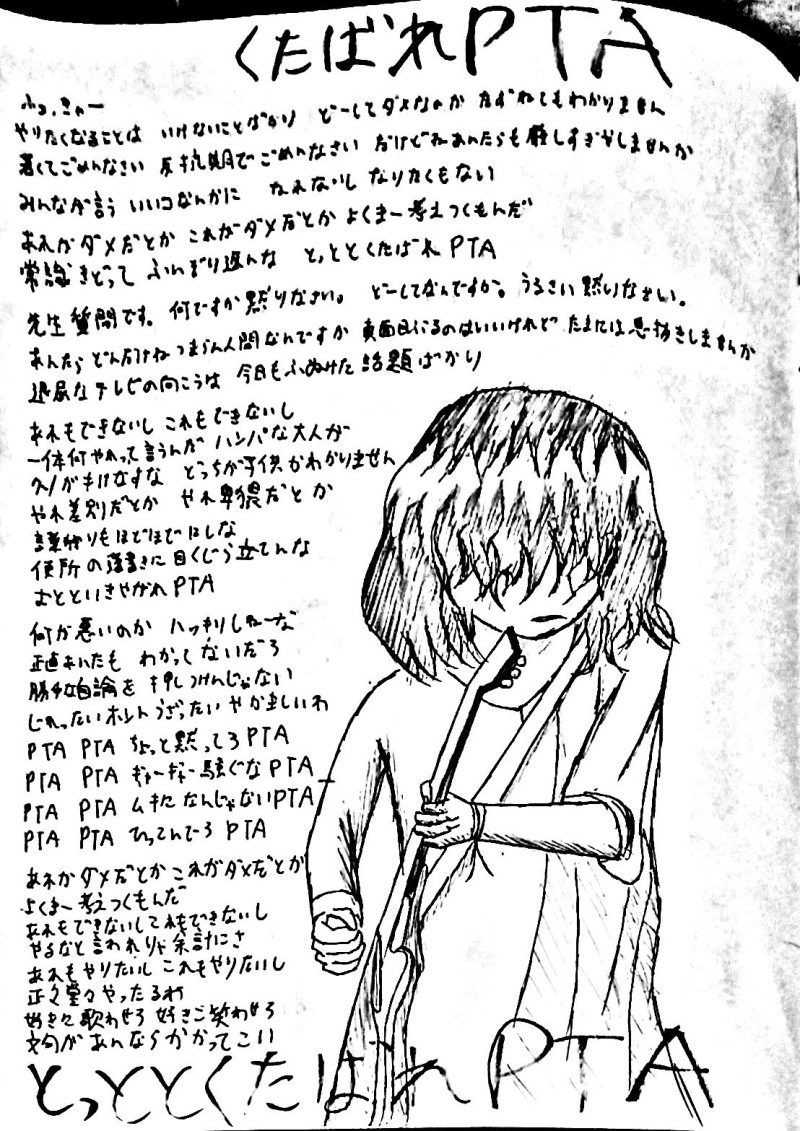 くたばれPTA
ふぁっきゅー
やりたくなることは いけないことばかり どーしてダメなのか たずねてもわかりません
若くてごめんなさい 反抗期でごめんなさい だけどねあんたらも厳しすぎやしませんか
みんなが言う いいコなんかに なれないし なりたくもない
あれがダメだとか これがダメだとか よくまー考えつくもんだ
常識きどって ふんぞり返んな とっととくたばれ PTA
先生質問です。何ですか黙りなさい。 どーしてなんですか。うるさい黙りなさい。
あんたら どんだけねつまらん人間なんですか 真面目ぶるのはいいけれど たまには息抜きしませんか
退屈なテレビの向こうは 今日もふぬけた 話題ばかり
あれもできないし これもできないし
一体何やれって言うんだ ハンパな大人が
ケチつけなすな どっちが子供かわかりません
やれ差別だとか やれ卑猥だとか
言葉狩りもほどほどにしな
便所の落書きに目くじら立てんな
おとといきやがれPTA
何が悪いのか ハッキリしねーな
正直あんたも わかってないだろ
勝手な自論を 押しつけんじゃない
じれったいホントうざったい やかましいわ
PTA PTA ちょっと黙ってろPTA
PTA PTA ギャーギャー騒ぐなPTA
PTA PTA ムキになんじゃないPTA
PTA PTA ひっこんでろ PTA
あれがダメだとか これがダメだとか
よくまー考えつくもんだ
あれもできないしこれもできないし
やるなと言われりゃ余計にさ
あれもやりたいし これもやりたいし
正々堂々やったるわ
好きに歌わせろ 好きに笑わせろ
文句があんならかかってこい
とっととくたばれPTA